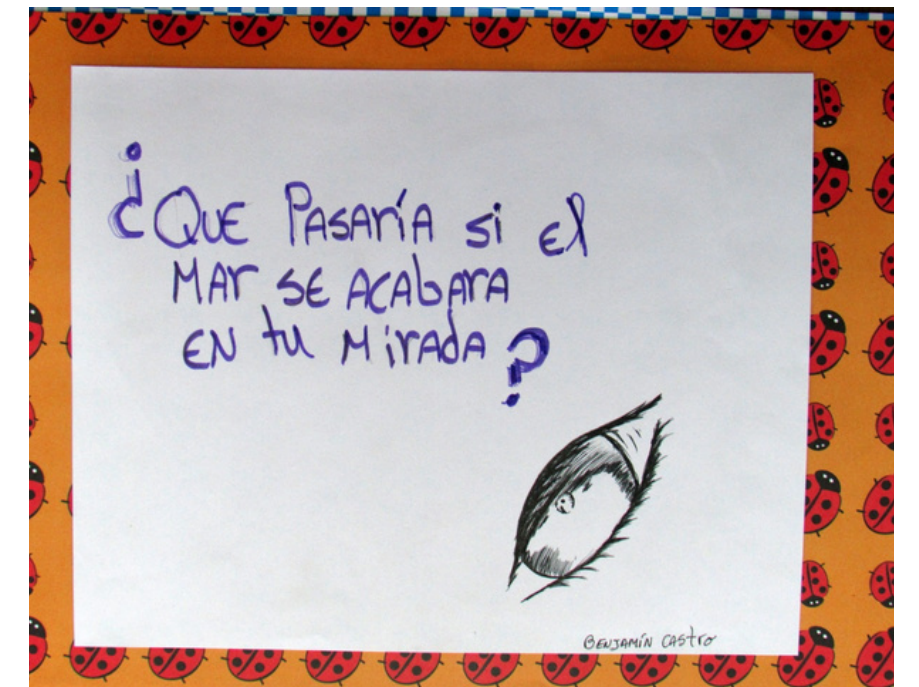 ¿QUE PASAríA si El
MAr SE ACAbArA
EN tu MirAdA?
BENJAMíN CAStro